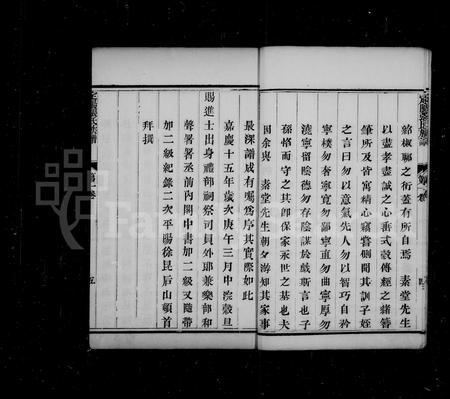 綿椒聊之衍蓋有所自焉 素堂先生
以盡孝盡誠之心垂式穀傳經之緒箸
筆所及皆寓精心竊嘗側聞其訓子姪
之言曰勿以意氣先人勿以智巧自矜
寧樸勿奢寧寬勿鄙寧直勿曲寧厚勿
澆寧留陰德勿存陰謀於戲斯言也子
孫恪而守之其即保家永世之基也夫
因余與 素堂先生朝夕游知其家事
最深譜成有囑為序其實際如此
嘉慶十五年歲次庚午三月中浣穀旦
賜進士出身禮部祠祭司員外郎兼樂部和
聲署署丞前內閣中書加二級又隨帶
加二級紀錄二次平陽徐昆后山頓首
拜撰
第一卷
五
四